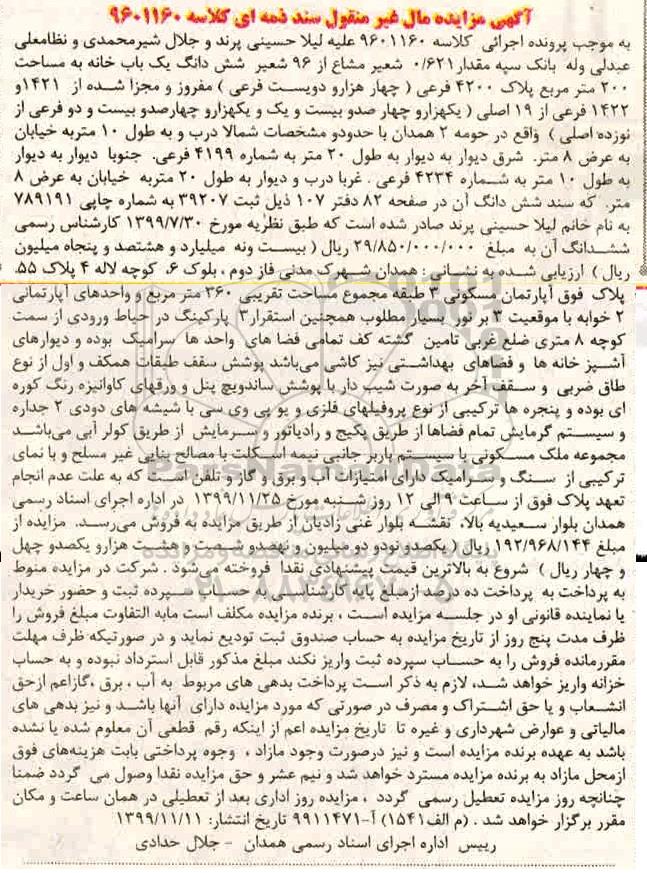 آگهی مزایده مال غیر منقول سند ذمه ای کلاسه ۹۶۰۱۱۶۰
به موجب پرونده اجرائی کلاسه ۹۶۰۱۱۶۰ علیه لیلا حسینی پرند و جلال شیرمحمدی و نظامعلی
عبدلی وله بانک سپه مقدار ۰/۶۲۱ شعیر مشاع از ۹۶ شعیر شش دانگ یک باب خانه به مساحت
۲۰۰ متر مربع پلاک ۴۲۰۰ فرعی ( چهار هزارو دویست فرعی ) مفروز و مجزا شده از ۱۴۲۱و
۱۴۲۲ فرعی از ۱۹ اصلی ( یکهزارو چهار صدو بیست و یک و یکهزارو چهارصدو بیست و دو فرعی از
نوزده اصلی ) واقع در حومه ۲ همدان با حدودو مشخصات شمالا درب و به طول ۱۰ متربه خیابان
به عرض ۸ متر. شرق دیوار به دیوار به طول ۲۰ متر به شماره ۴۱۹۹ فرعی. جنوبا دیوار به دیوار
به طول ۱۰ متر به شماره ۴۲۳۴ فرعی . غربا درب و دیوار به طول ۲۰ متربه خیابان به عرض ۸
متر. که سند شش دانگ آن در صفحه ۸۲ دفتر ۱۰۷ ذیل ثبت ۳۹۲۰۷ به شماره چاپی ۷۸۹۱۹۱
به نام خانم لیلا حسینی پرند صادر شده است که طبق نظریه مورخ ۱۳۹۹/۷/۳۰ کارشناس رسمی
ششدانگ آن به مبلغ ۲۹/۸۵۰/۰۰۰/۰۰۰ ریال ( بیست ونه میلیارد و هشتصد و پنجاه میلیون
ریال ) ارزیابی شده به نشانی : همدان شهرک مدنی فاز دوم ، بلوک ۶، کوچه لاله ۴ پلاک ۵۵.
پلاک فوق آپارتمان مسکونی ۳ طبقه مجموع مساحت تقریبی ۳۶۰ متر مربع و واحدهای آپارتمانی
۲ خوابه با موقعیت ۳ بر نور بسیار مطلوب همچنین استقرار۳ پارکینگ در حیاط ورودی از سمت
کوچه ۸ متری ضلع غربی تامین گشته کف تمامی فضا های واحد ها سرامیک بوده و دیوارهای
آشپز خانه ها و فضاهای بهداشتی نیز کاشی می‌باشد پوشش سقف طبقات همکف و اول از نوع
طاق ضربی و سقف آخر به صورت شیب دار با پوشش ساندویچ پنل و ورقهای کاوانیزه رنگ کوره
ای بوده و پنجره ها ترکیبی از نوع پروفیلهای فلزی و یو پی وی سی با شیشه های دودی ۲ جداره
و سیستم گرمایش تمام فضاها از طریق پکیج و رادیاتور و سرمایش از طریق کولر آبی می‌باشد
مجموعه ملک مسکونی با سیستم باربر جانبی نیمه اسکلت با مصالح بنایی غیر مسلح و با نمای
ترکیبی از سنگ و سرامیک دارای امتیازات آب و برق و گاز و تلفن است که به علت عدم انجام
تعهد پلاک فوق از ساعت ۹ الی ۱۲ روز شنبه مورخ ۱۳۹۹/۱۱/۲۵ در اداره اجرای اسناد رسمی
همدان بلوار سعیدیه بالا، نقشه بلوار غنی زادیان از طریق مزایده به فروش می‌رسد. مزایده از
مبلغ ۱۹۲/۹۶۸/۱۴۴ ریال ( یکصدو نودو دو میلیون و نهصدو شصت و هشت هزارو یکصدو چهل
و چهار ریال ) شروع به بالاترین قیمت پیشنهادی نقدا فروخته می‌شود . شرکت در مزایده منوط
به پرداخت به پرداخت ده درصد ازمبلغ پایه کارشناسی به حساب سپرده ثبت و حضور خریدار
یا نماینده قانونی او در جلسه مزایده است ، برنده مزایده مکلف است مابه التفاوت مبلغ فروش را
ظرف مدت پنج روز از تاریخ مزایده به حساب صندوق ثبت تودیع نماید و در صورتیکه ظرف مهلت
مقررمانده فروش را به حساب سپرده ثبت واریز نکند مبلغ مذکور قابل استرداد نبوده و به حساب
خزانه واریز خواهد شد، لازم به ذکر است پرداخت بدهی های مربوط به آب ، برق ،گازاعم ازحق
انشعاب و یا حق اشتراک و مصرف در صورتی که مورد مزایده دارای آنها باشد و نیز بدهی های
مالیاتی و عوارض شهرداری و غیره تا تاریخ مزایده اعم از اینکه رقم قطعی آن معلوم شده یا نشده
باشد به عهده برنده مزایده است و نیز درصورت وجود مازاد ، وجوه پرداختی بابت هزینه‌های فوق
ازمحل مازاد به برنده مزایده مسترد خواهد شد و نیم عشر و حق مزایده نقدا وصول می گردد ضمنا
چنانچه روز مزایده تعطیل رسمی گردد ، مزایده روز اداری بعد از تعطیلی در همان ساعت و مکان
مقرر برگزار خواهد شد . (م الف۱۵۴۱) آ-۹۹۱۱۴۷۱ تاریخ انتشار: ۱۳۹۹/۱۱/۱۱
رییس اداره اجرای اسناد رسمی همدان - جلال حدادی